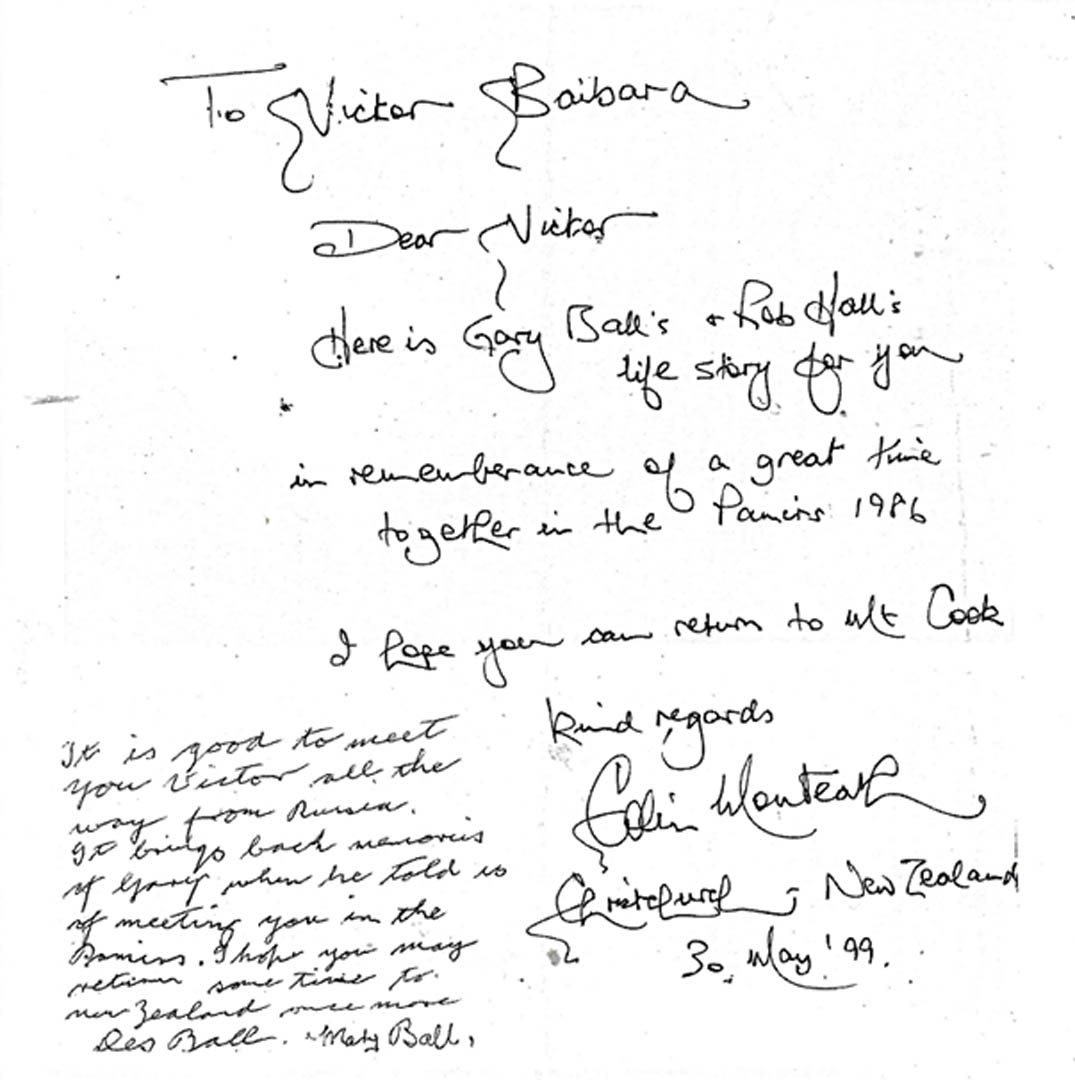 To Victor Baibara
Dear Victor
Here is Gary Ball's + Rob Hall's
life story for you
in rememberance of a great time
together in the Pamirs 1986
I hope you can return to Mt Cook
kind regards
Colin Monteath
Christchurch, New Zealand
30. May '99.
It is good to meet
you Victor all the
way from Russia.
It brings back memories
of Gary when he told us
of meeting you in the
Pamirs. I hope you may
return some time to
new Zealand once more
Des Ball. Mary Ball,